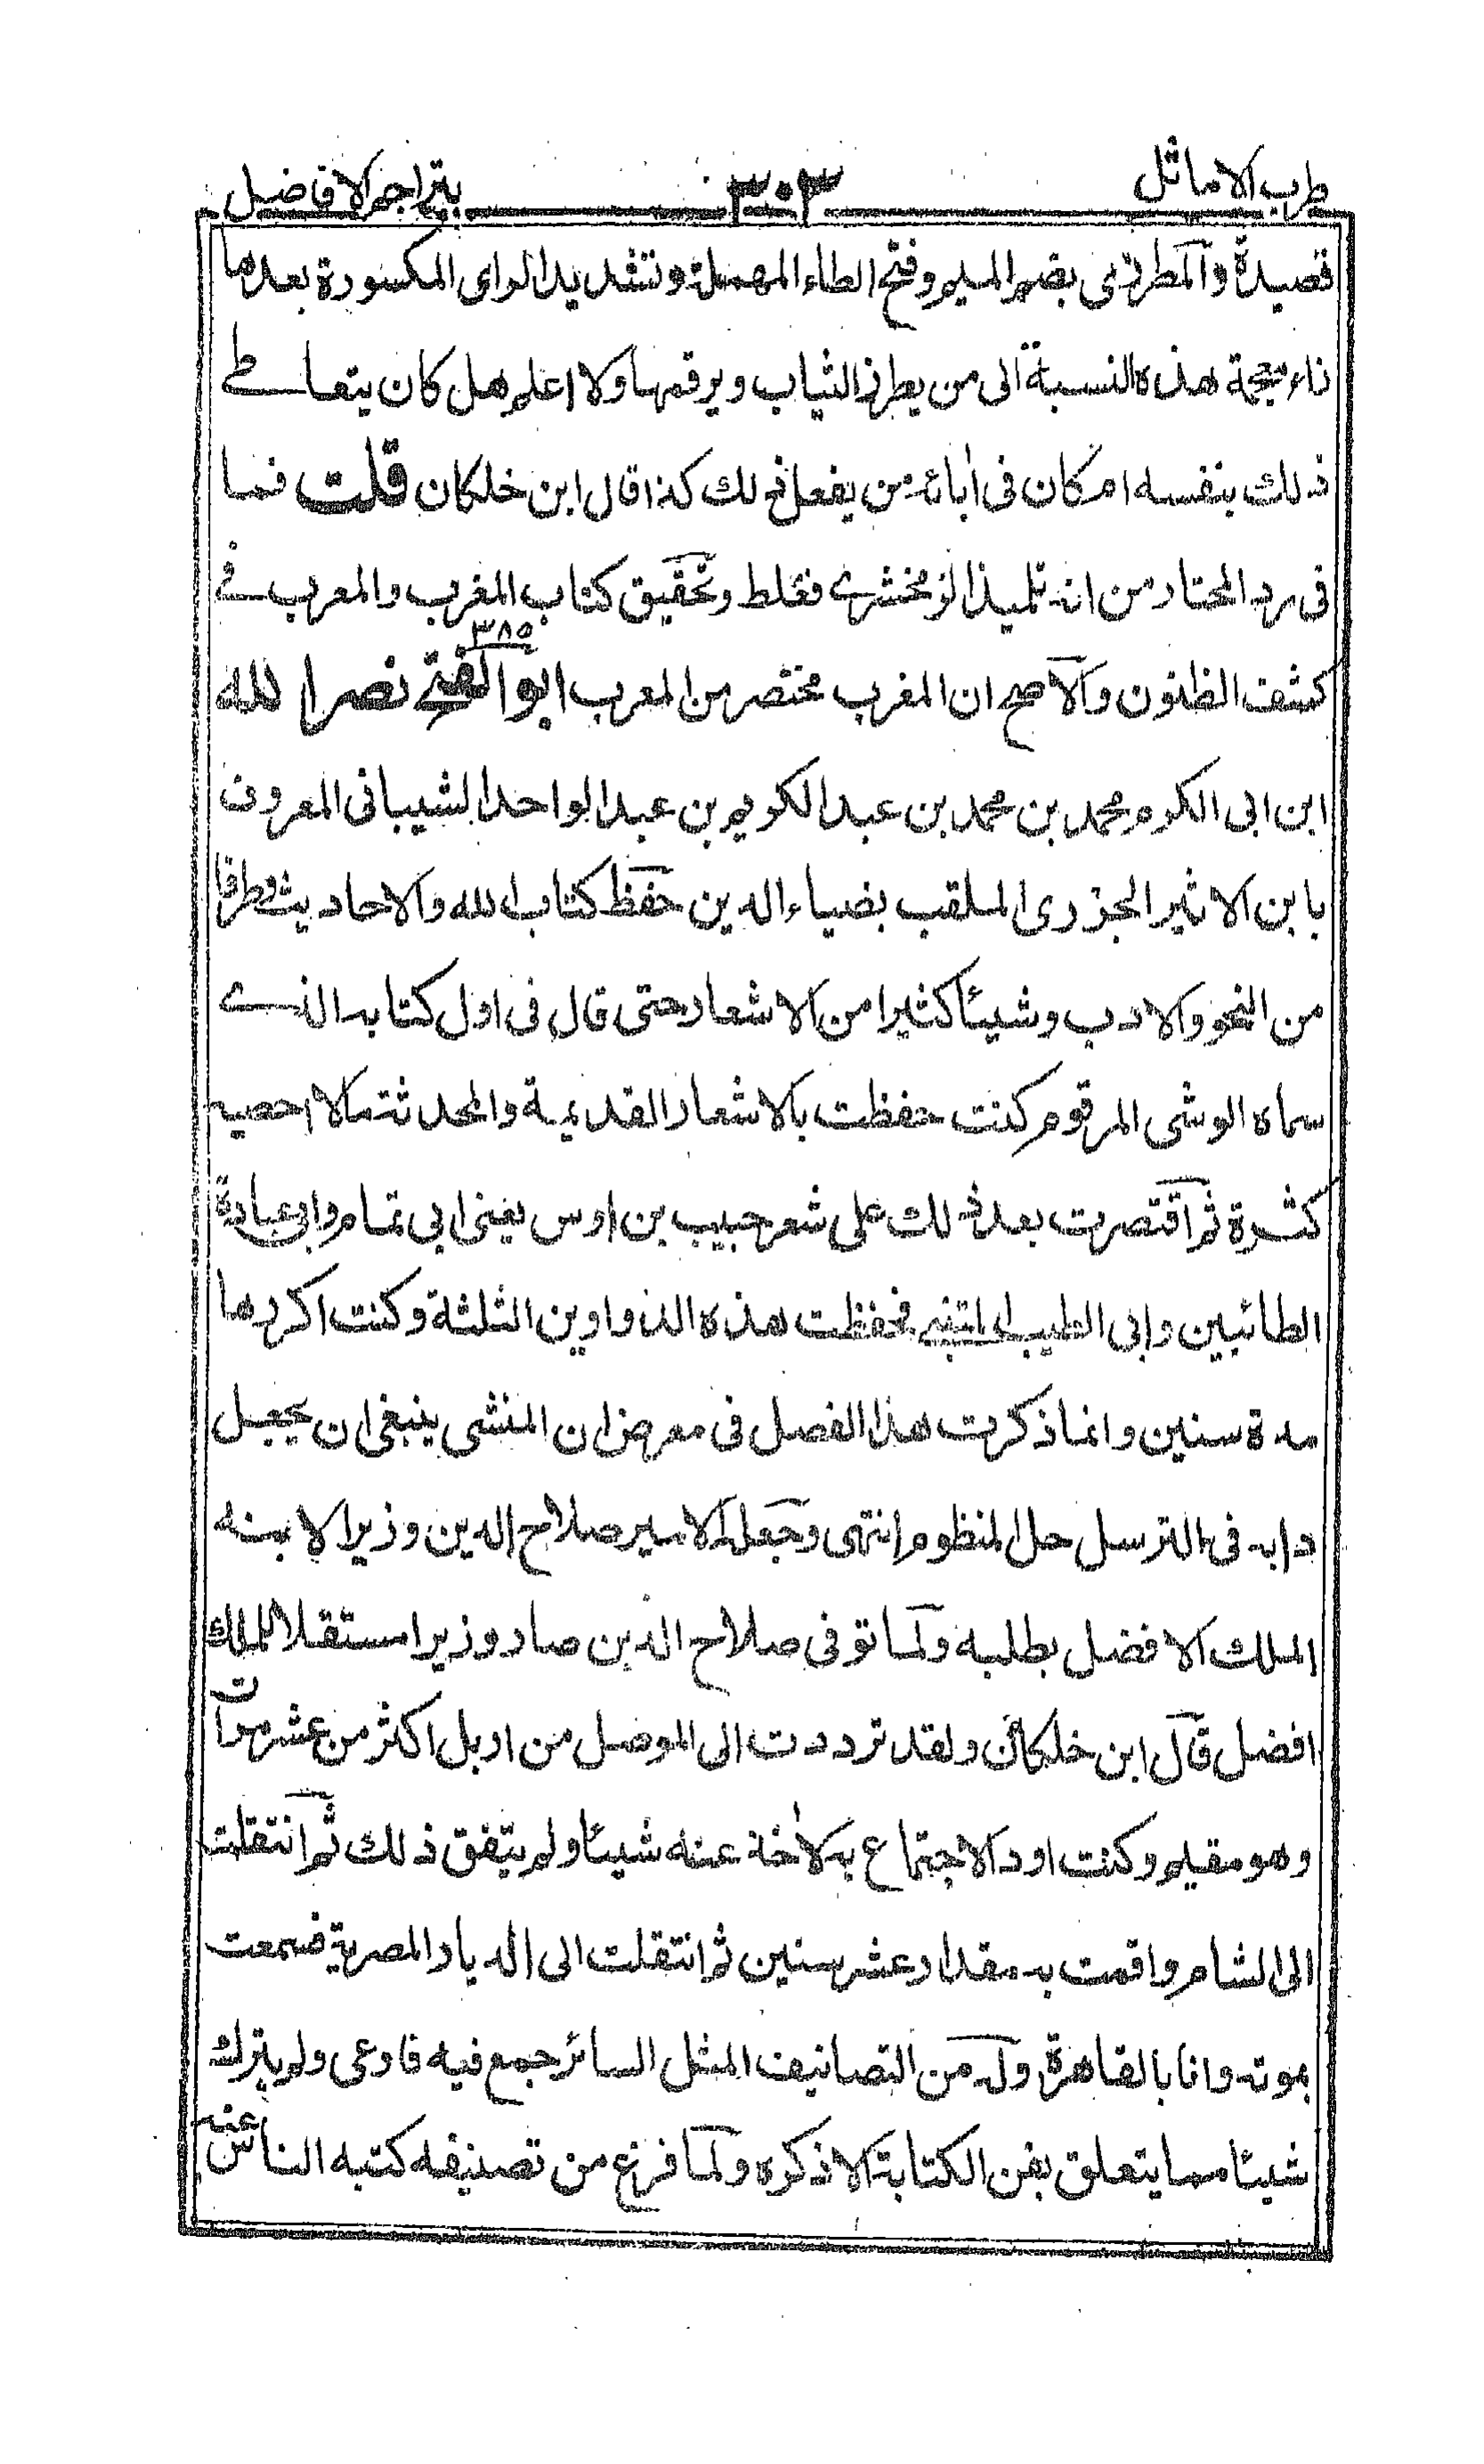 طرب الاماثل ٣٠٣ بتراجم الافاضل
قصيدة والمطرزى بضم الميم وفتح الطاء المهملة وتشديد الراى المكسورة بعدها
زاء معجمة هذه النسبة الى من يطرز الثياب ويرقمها ولا اعلم هل كان يتعاطے
ذلك بنفسه ام كان فى اٰبائه من يفعل ذلك كذا قال ابن خلكان قلت فما
فى رد المحتار من انه تلميذ الزمخشرے فغلط وتحقيق كتاب المغرب والمعرب فے
٣٨٥
كشف الظنون والاصح ان المغرب مختصر من المعرب ابو الفتح نصر الله
ابن ابى الكرم محمد بن محمد بن عبد الكريم بن عبد الواحد الشيبانى المعروف
بابن الاثير الجزرى الملقب بضياء الدين حفظ كتاب الله والاحاديث وطرفا
من النحو والادب وشيئا كثيرا من الاشعار حتى قال فى اول كتابه الذے
سماه الوشى المرقوم كنت حفظت بالاشعار القديمة والمحدثة مالا احصيه
كثرة ثم اقتصرت بعد ذلك على شعر حبيب بن اوس يعنى ابى تمام وابى عبادة
الطائيين وابى الطيب المتنبى فحفظت هذه الدواوين الثلثة وكنت اكررها
مدة سنين وانما ذكرت هذا الفصل فى معرض ان المنشى ينبغى ان يجعل
دابه فى الترسل حل المنظوم انتهى وجعله الامير صلاح الدين وزيرا لابنه
الملك الافضل بطلبه ولما توفى صلاح الدين صار وزيرا مستقلا للملك
افضل قال ابن خلكان ولقد ترددت الى الموصل من اربل اكثر من عشر مرات
وهو مقيم وكنت اود الاجتماع به لاٰخذ عنه شيئا ولم يتفق ذلك ثم انتقلت
الى الشام واقمت به مقدار عشر سنين ثم انتقلت الى الديار المصرية فسمعت
بموته وانا بالقاهرة وله من التصانيف المثل السائر جمع فيه فاوعى ولم يترك
شيئا مما يتعلق بفن الكتابة الا ذكره ولما فرغ من تصنيفه كتبه الناس عنه